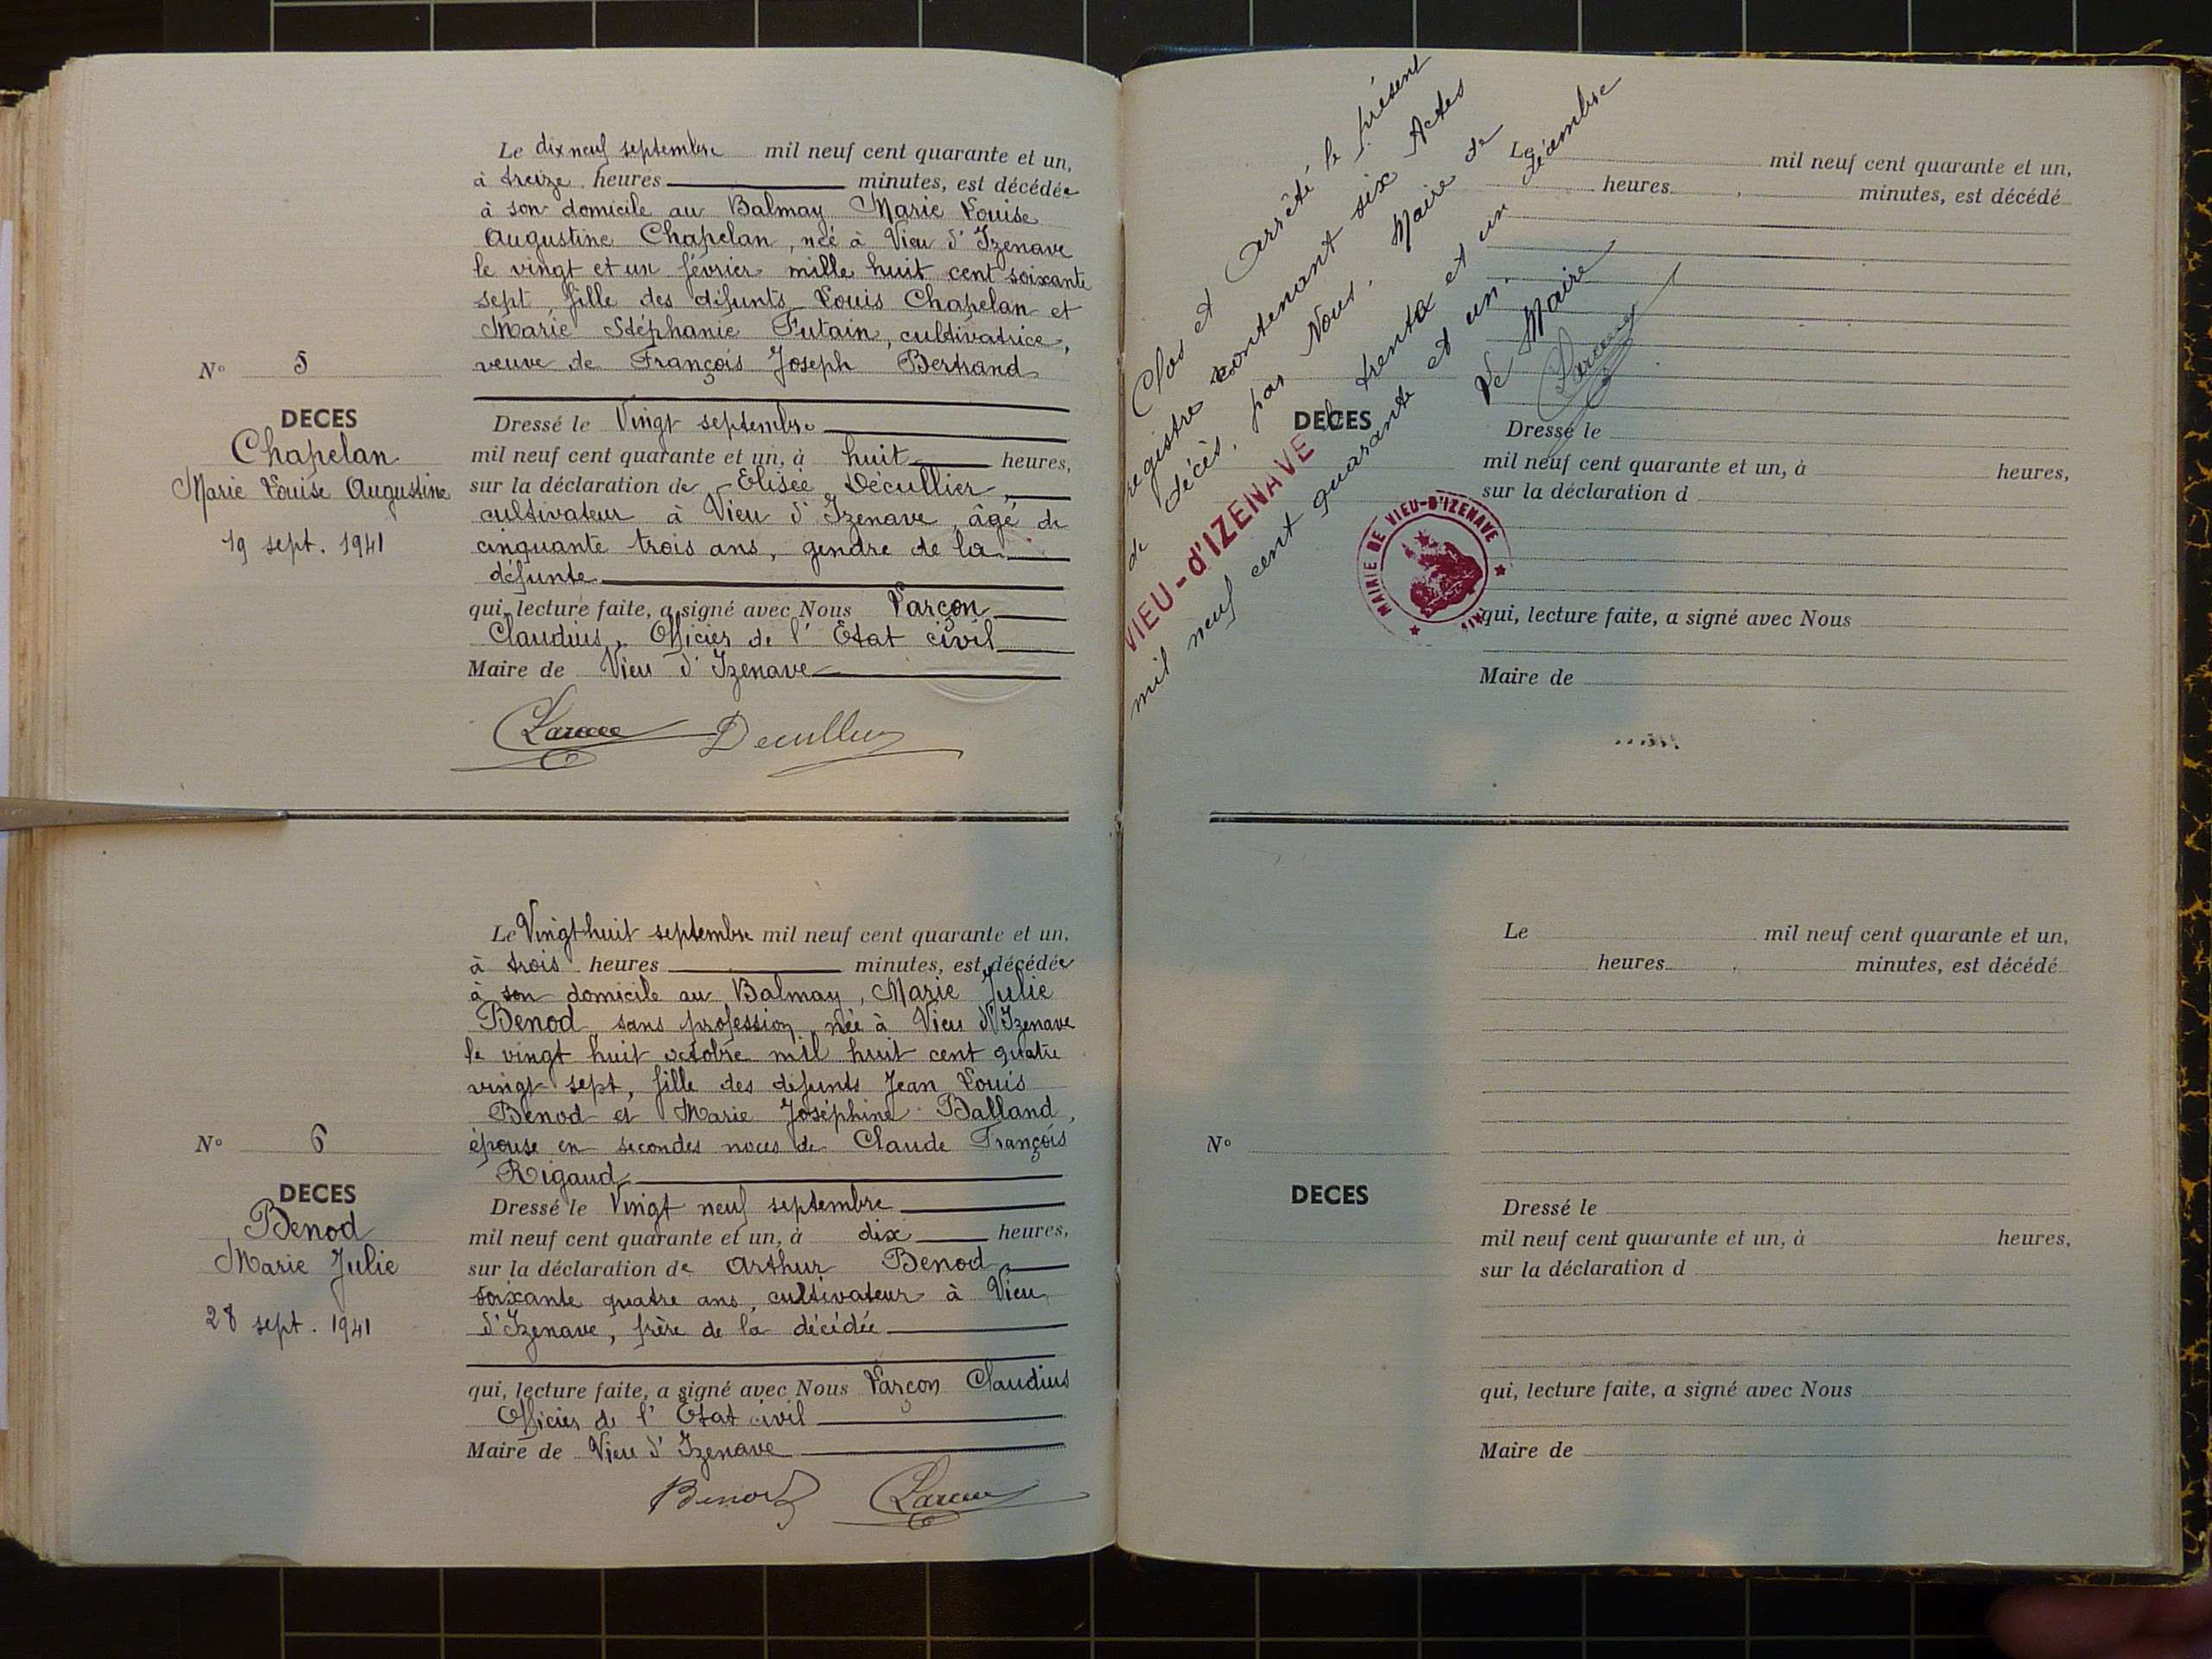 Le dix neuf septembre mil neuf cent quarante et un,
à treize heures minutes, est décédée
à son domicile au Balmay Marie Louise
Augustine Chapelan, née à Vieu d'Izenave
le vingt et un février mille huit cent soixante
sept fille des défunts Louis Chapelan et
Marie Stéphanie Futain, cultivatrice,
veuve de François Joseph Bertrand
N° 5
DECES
Chapelan
Marie Louise Augustine
19 sept. 1941
Dressé le Vingt septembre
mil neuf cent quarante et un, à huit heures,
sur la déclaration de Elisée Décullier,
cultivateur à Vieu d'Izenave, âgé de
cinquante trois ans, gendre de la
défunte
qui, lecture faite, a signé avec Nous Larçon
Claudius, Officier de l'Etat civil
Maire de Vieu d'Izenave
Decullier
Le Vingt huit septembre mil neuf cent quarante et un,
à trois heures minutes, est décédée
à son domicile au Balmay, Marie Julie
Benod sans profession, née à Vieu d'Izenave
le vingt huit octobre mil huit cent quatre
vingt sept, fille des défunts Jean Louis
Benod et Marie Joséphine Balland,
épouse en secondes noces de Claude François
Rigaud
N° 6
DECES
Benod
Marie Julie
28 sept. 1941
Dressé le Vingt neuf septembre
mil neuf cent quarante et un, à dix heures,
sur la déclaration de Arthur Benod
soixante quatre ans, cultivateur à Vieu
d'Izenave, frère de la décédée
qui, lecture faite, a signé avec Nous Larçon Claudius
Officier de l'Etat civil
Maire de Vieu d'Izenave
Benod
Clos et arrêté le présent
registre contenant six Actes
de décès, par Nous, Maire de
VIEU-d'IZENAVE le trente et un décembre
mil neuf cent quarante et un.
Le Maire
MAIRIE DE VIEU-D'IZENAVE
Le mil neuf cent quarante et un,
heures minutes, est décédé
DECES
Dressé le
mil neuf cent quarante et un, à heures,
sur la déclaration d
qui, lecture faite, a signé avec Nous
Maire de
Le mil neuf cent quarante et un,
heures minutes, est décédé
N°
DECES
Dressé le
mil neuf cent quarante et un, à heures,
sur la déclaration d
qui, lecture faite, a signé avec Nous
Maire de